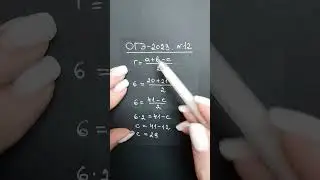 ОГЭ-2023. №12
r = (a+b-c)/2
6 = (20+21
2
6 = (41-c)/2
6·2 = 41-c
c = 41-12
c = 29